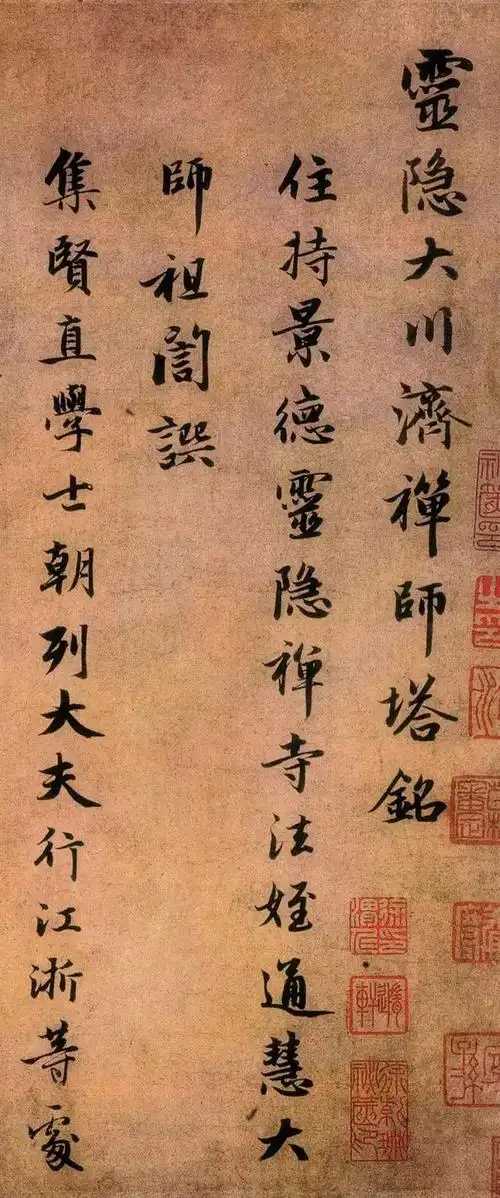 靈隐大川濟禪師塔銘
住持景德靈隐禅寺法姪通慧大
師祖訚譔
集賢直學士朝列大夫行江浙等處